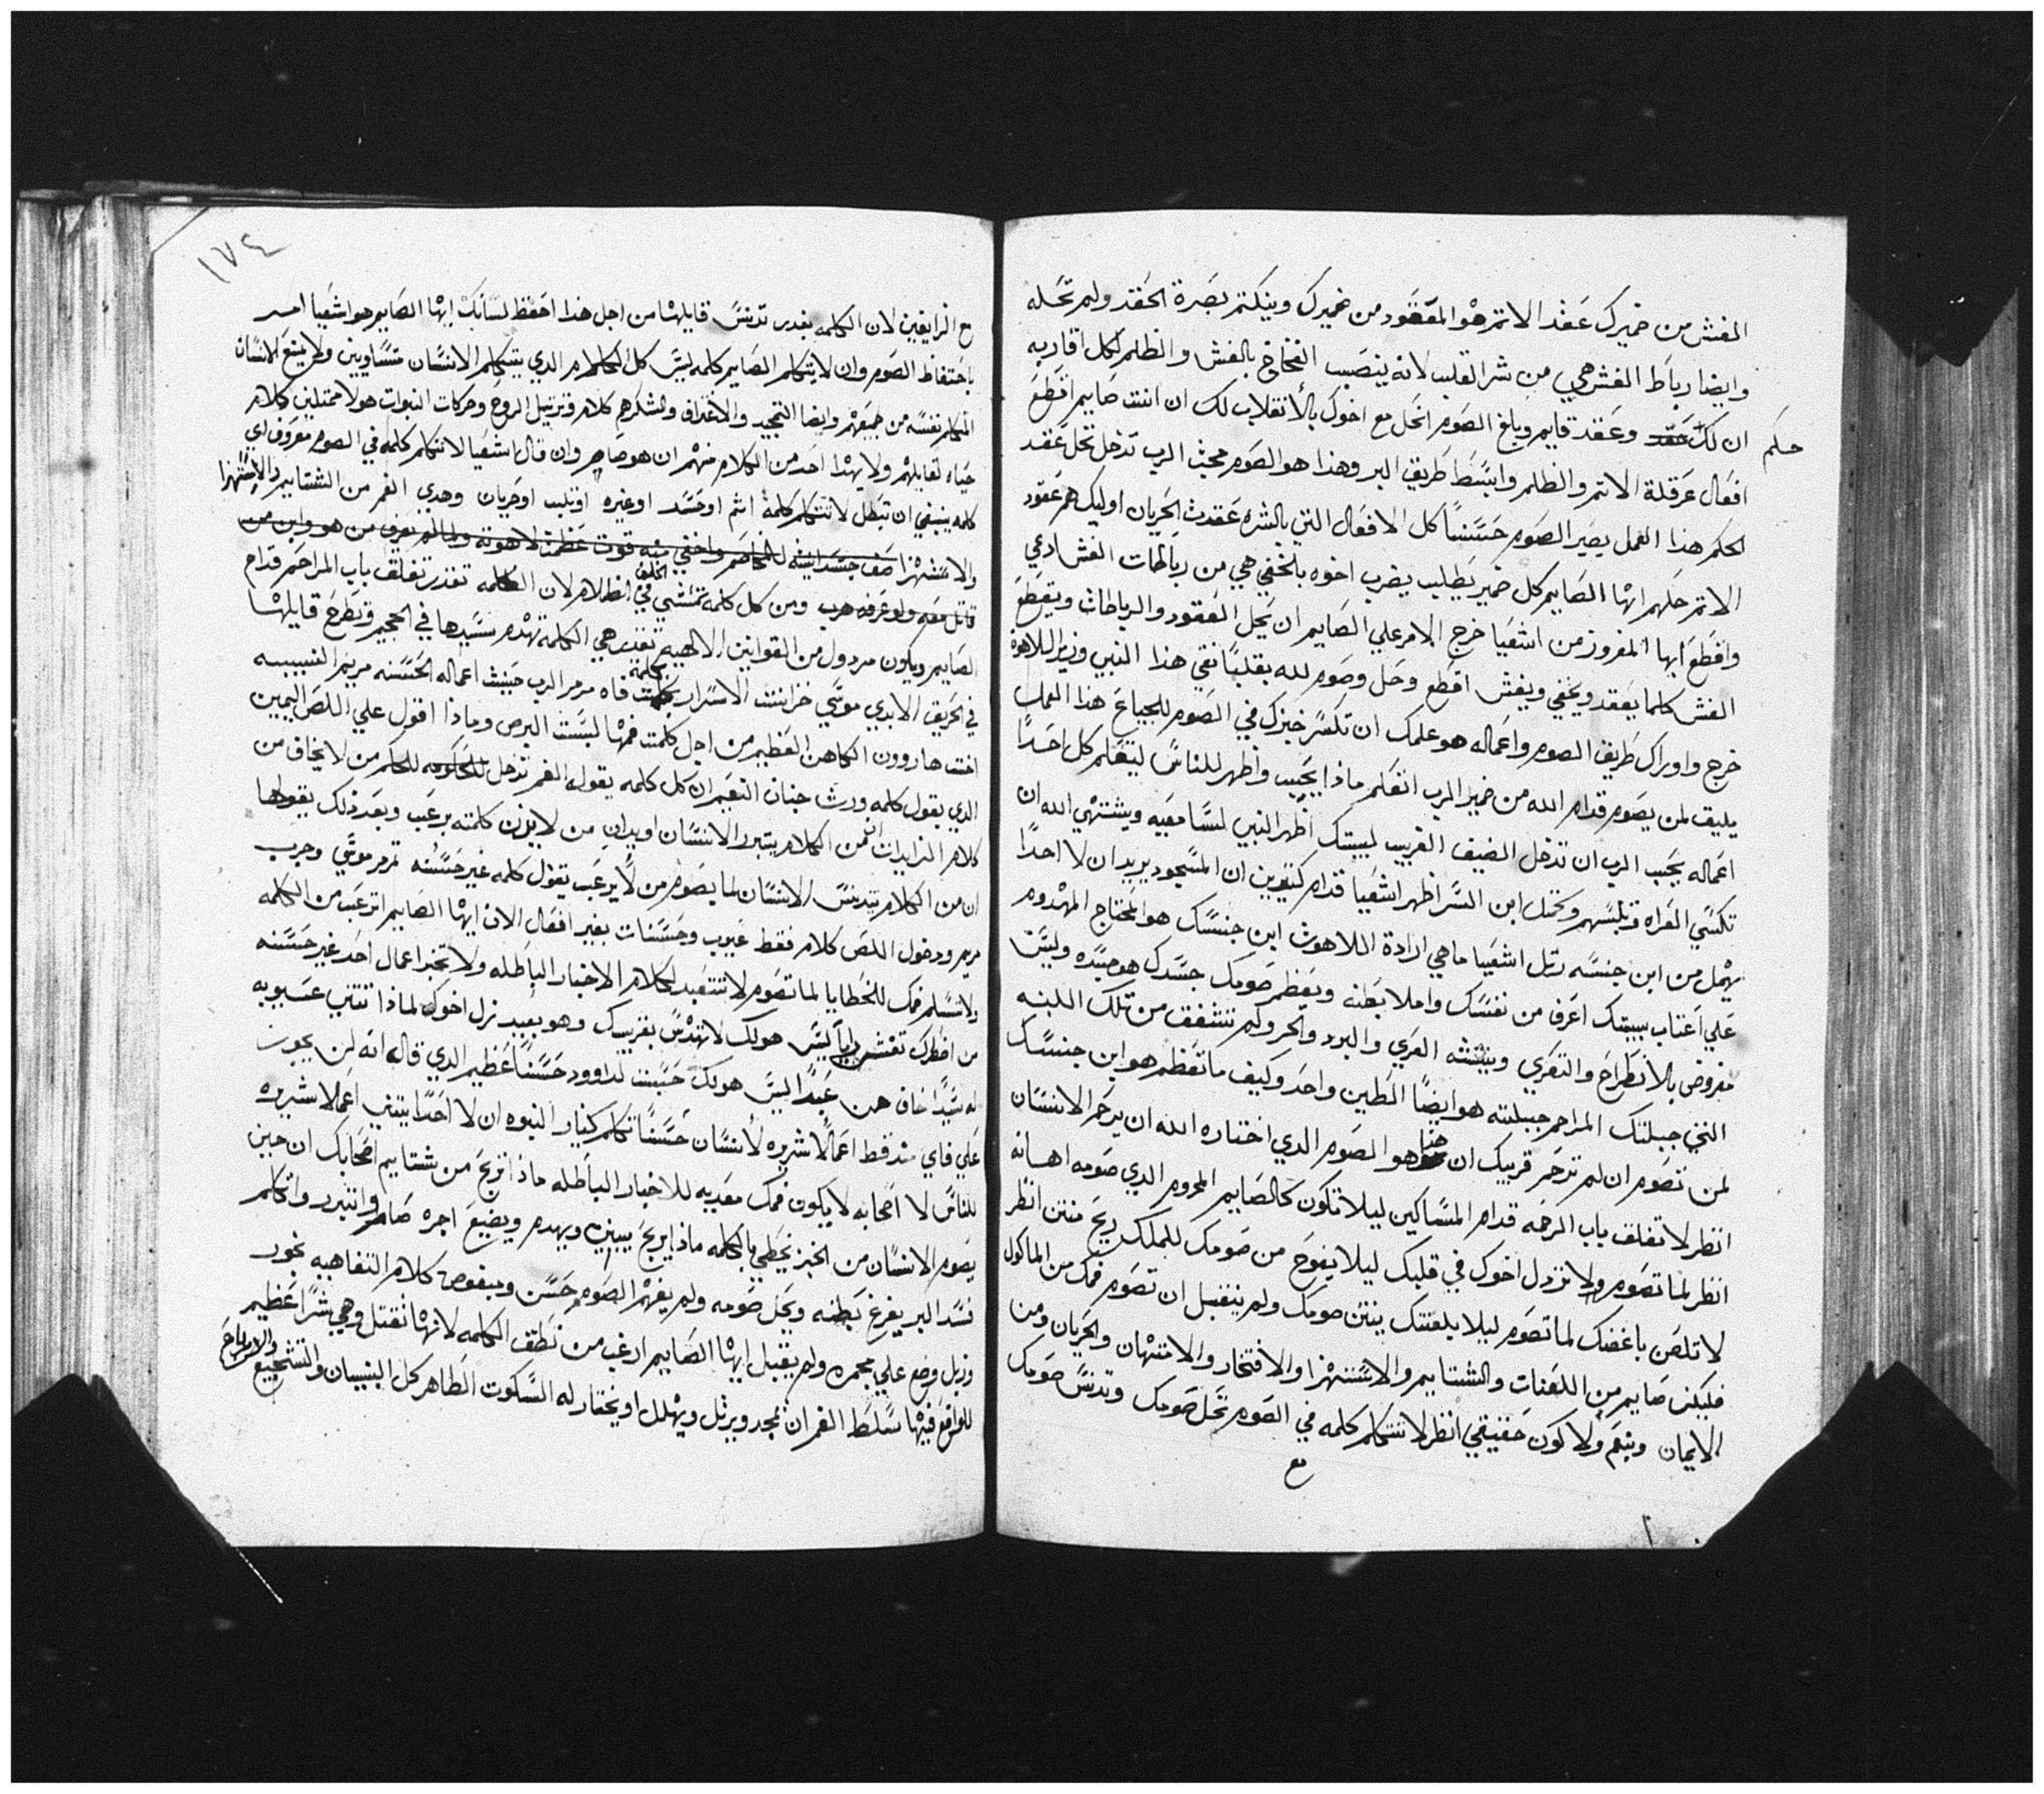 الغش من ضميرك عقد الاثم هو المعقود من ضميرك وينكتم بصرة الحقد ولم تحله
وايضا رباط الغش هي من شر القلب لانه ينصب الفخاخ بالغش والظلم لكل اقاربه
حكم ان لك حقد وعقد قايم وبلغ الصوم انحل مع اخوك بالأنقلاب لك ان انت صايم اقطع
افعال عرقلة الاثم والظلم وابسط طريق البر وهذا هو الصوم محبث الرب تدخل تحل عقد
الحكم هذا العمل يصير الصوم حسنًا كل الافعال التي بالشره عقدت الجريان اوليك هم عقود
الاثم حلهم ايها الصايم كل ضمير يطلب يضرب اخوه بالخفي هي من رباطات الغش ادعي
واقطع ايها المفروز من اشعيا خرج الامر علي الصايم ان يحل العقود والرباطات ويقطع
الغش كلما يعقد ويخفي ويغش اقطع وحل وصوم لله بقلبًا نقي هذا النبي وزير اللاهوة
خرج واوراك طريق الصوم واعماله هو علمك ان تكسر خبزك في الصوم للجياع هذا العمل
يليق لمن يصوم قدام الله من ضمير الرب اتعلم ماذا يحب واظهر للناس ليتعلم كل احدًا
اعماله يحب الرب ان تدخل الضيف الغريب لبيتك اظهر النبي لسامعيه ويشتهي الله ان
تكسي العراه وتلبسهم وتحتمل ابن السر اظهر اشعيا قدام كثيرين ان المسجود يريد ان لا احدًا
يهمل من ابن جنسه رتل اشعيا ما هي ارادة اللاهوت ابن جنسك هو المحتاج المهدوم
علي اعتاب بيتك اعرف من نفسك واملا بطنه ويعظم صومك جسدك هو جسده وليس
مفروض بالأنطراح والتعري وبنته العري والبرد والحر ولم تشفق من تلك اللبنه
التي جبلتك المراحم جبلته هو ايضًا الطين واحد وكيف ما تعظم هو ابن جنسك
لمن تصوم ان لم ترحم قريبك ان حقا هو الصوم الدي اختاره الله ان يرحم الانسان
انظر لا تغلق باب الرحمه قدام المساكين ليلا تكون كالصايم المحروم الدي صومه اهانه
انظر لما تصوم ولا تزدل اخوك في قلبك ليلا يفوح من صومك للملك ريح منتن انظر
لا تلعن باغضك لما تصوم ليلا بلعنتك ينتن صومك ولم ينقبل ان تصوم فمك من الماكول
فليكن صايم من اللعنات والشتايم والاستهزا والافتخار والامتهان والجريان ومن
الايمان وبنعم ولا كون حقيقي انظر لا تتكلم كلمه في الصوم تحل صومك وتدنس صومك
مع
١٧٤
مع الزايغين لان الكلمه بغدر تدنس قايلها من اجل هذا احفظ لسانك ايها الصايم هو اشعيا امر
باحتفاظ الصوم وان لا يتكلم الصايم كلمه ليس كل الكلام الدي يتكلم الانسان متساويين ولم يمنع الانسان
المتكلم نفسه من جميعهم وايضا التمجيد والاعتراف والشكر هم كلام وترتيل الروح وحركات النبوات هولا ممتلين كلام
حياه لقابلهم ولا يهدا احد من الكلام منهم ان هو صام وان قال اشعيا لا تتكلم كلمه في الصوم معروف اي
كلمه ينبغي ان تبطل لا تتكلم كلمة اثم او حسد او غيره او تلب او جريان وهدي الفم من الشتايم والاستهزا
قاتل معه ولو عرفه هرب ومن كل كلمه تمشي في الظلام لان الكلمه تقدر تغلق باب المراحم قدام
الصايم ويكون مردول من القوانين الالهيه تقدر هي الكلمة تهدم سيدها في الجحيم وتطرح قايلها
في الحريق الابدي موسي خزانت الاسرار بكلمه فاه مرمر الرب حبيث اعماله الحسنه مريم النبيبه
اخت هاروون الكاهن العظيم من اجل كلمت فمها لبست البرص وماذا اقول علي اللص اليمين
الدي بقول كلمه ورث جنان النعيم ان كل كلمه يقول الفم تدخل للحكم من لا يخاف من
كلام الزايدات من الكلام يتبرر الانسان او يدان من لا يزن كلمته برعب وبعد ذلك يقولها
ان من الكلام يتدنس الانسان لما يصوم من لا يرعب يقول كلمه غير حسنه تمرمر موسي وجرب
مريم ودخول اللص كلام فقط عيوب وحسنات بغير افعال الان ايها الصايم اترعب من الكلمه
ولا تسلم فمك للخطايا لما تصوم لا تتقيد لكلام الاخبار الباطله ولا تخبر اعمال احد غير حسنه
علي فاي منذ قط اعمالًا شريره لأنسان حسنًا تكلم كنيار النبوه ان لا احدًا يتنب اعمالا شريره
للناس لا اصحابه لا يكون فمك معديه للاخبار الباطله ماذا تربح من شتايم اصحابك ان حين
يصوم الانسان من الخبز يخطي بالكلمه ماذا يربح يبني ويهدم ويضيع اجره صام واتبرر واتكلم
فسد البر يفرغ بطنه ويحل صومه ولم يفهم الصوم حسن ومنقوص كلام التفاهيه بخور
وزبل وضع علي مجمره ولم يقبل ايها الصايم ارعب من نطق الكلمه لانها تقتل وهي شرًا عظيم
للواقع فيها سلط الفم ان يمجد ويرتل ويهلل او يختار له السكوت الطاهر كل النسيان والتشجيع والارباح